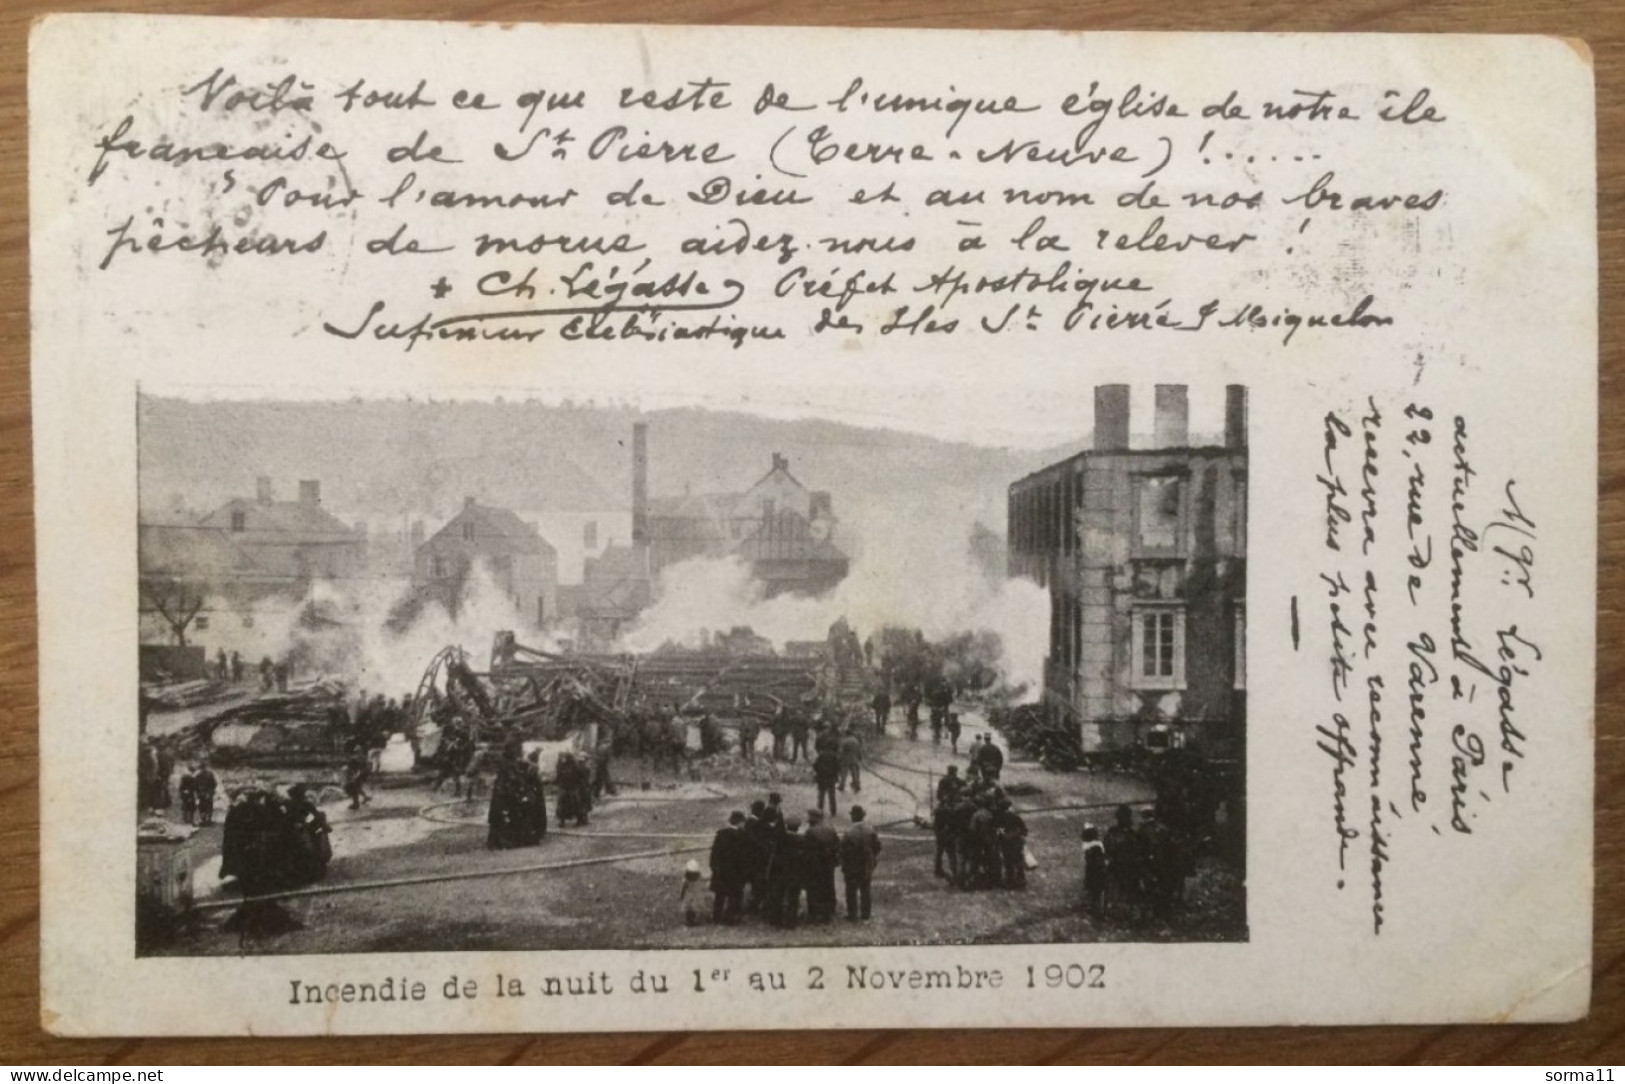 Voilà tout ce que reste de l'unique église de notre île
française de St. Pierre (Terre-Neuve)!......
Pour l'amour de Dieu et au nom de nos braves
pêcheurs de morue, aidez-nous à la relever !
+ Ch. Légasse, Préfet Apostolique
Supérieur Ecclésiastique des Iles St. Pierre & Miquelon
Mgr. Légasse
actuellement à Paris
22, rue de Varenne
recevra avec reconnaissance
la plus petite offrande.
Incendie de la nuit du 1er au 2 Novembre 1902
delcampe.net
sorma11